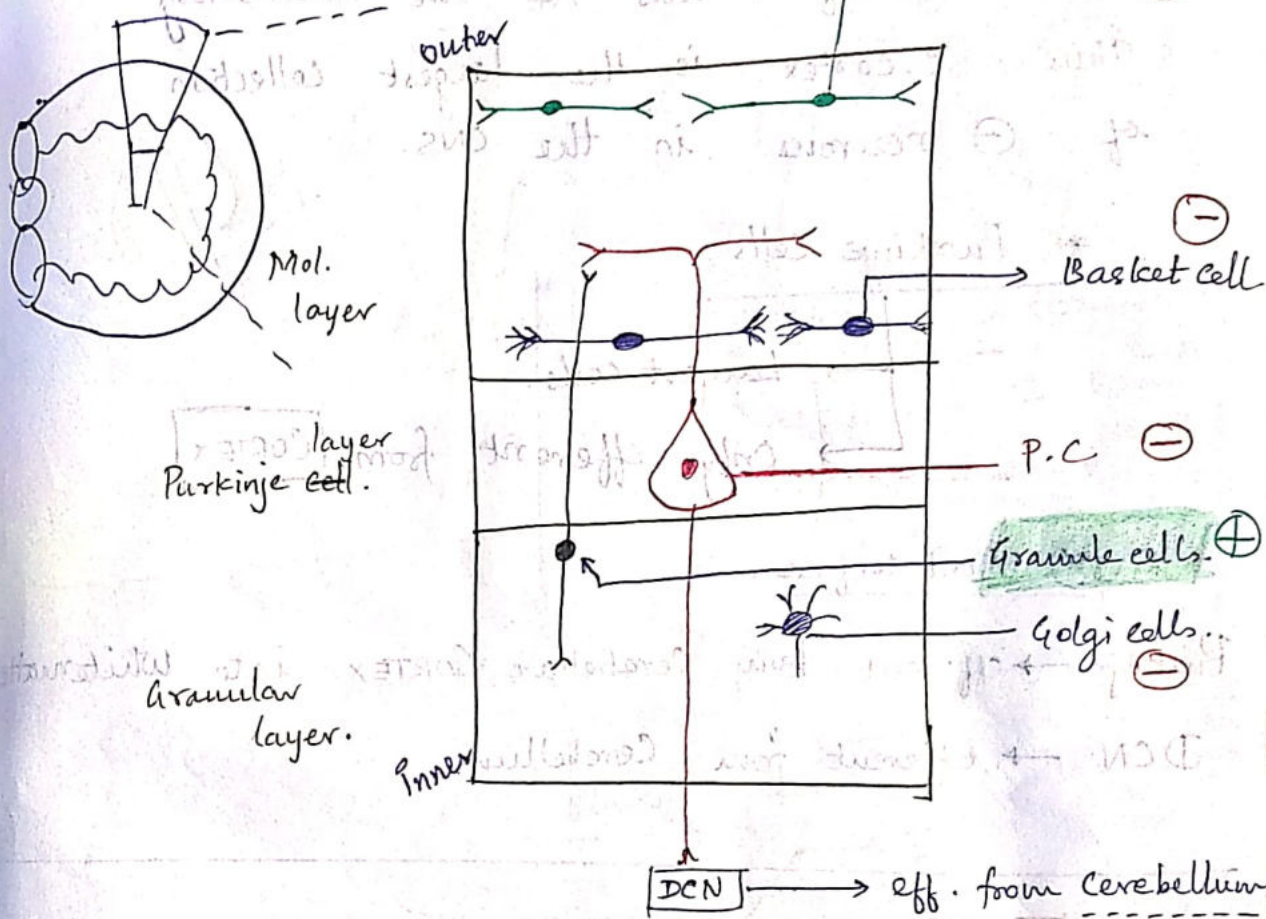 outer
Mol.
layer
⊖
Basket cell
layer
Purkinje cell.
P.C ⊖
Granule cells. ⊕
Golgi cells..
⊖
Granular
layer.
Inner
DCN → eff. from Cerebellum